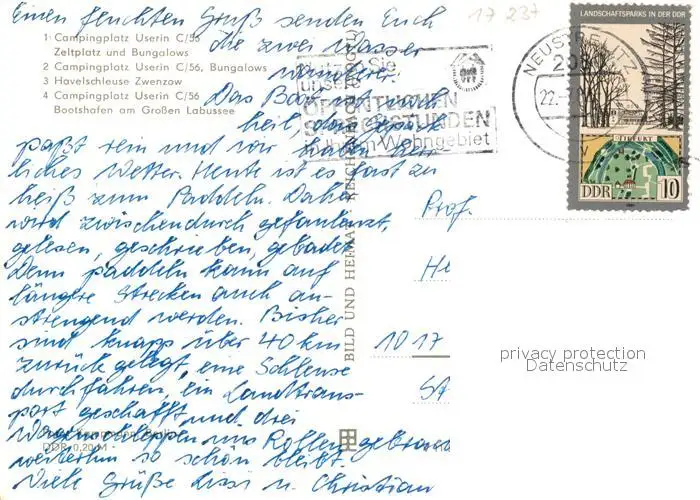 Einen feuchten Gruß senden Euch
die zwei Wasser
wanderer.
Das Boot ist noch
heil, das Gepäck
paßt rein und wir haben herr-
liches Wetter. Heute ist es fast zu
heiß zum Paddeln. Daher
wird zwischendurch gefaulenzt,
gelesen, geschrieben, gebadet.
Denn paddeln kann auf
längere Strecken auch an-
strengend werden. Bisher
sind knapp über 40 km
zurückgelegt, eine Schleuse
durchfahren, ein Landtrans-
port geschafft und drei
Wagenschleppen uns Rollen gebracht
weiterhin so schön bleibt.
Viele Grüße Lissi u. Christian
1 Campingplatz Userin C/56
Zeltplatz und Bungalows
2 Campingplatz Userin C/56, Bungalows
3 Havelschleuse Zwenzow
4 Campingplatz Userin C/56
Bootshafen am Großen Labussee
DDR 0,20 M
BILD UND HEIMAT REICHENBACH
17 237
Nutzen Sie
unsere
ÖFFENTLICHEN
SPRECHSTUNDEN
in Ihrem Wohngebiet
NEUSTRELITZ
LANDSCHAFTSPARKS IN DER DDR
DDR 10
Prof.
He
1017
St
privacy protection
Datenschutz